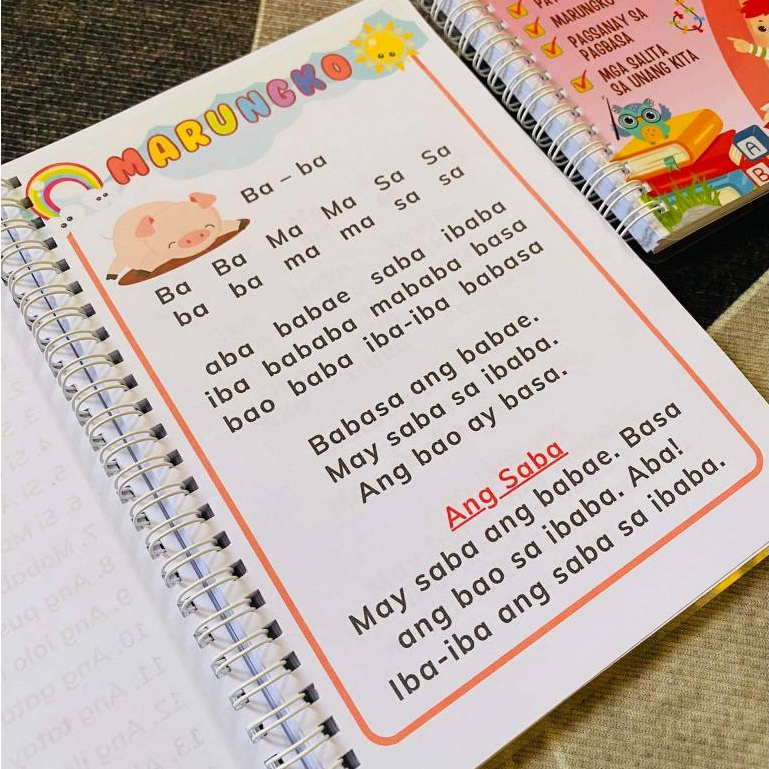 MARUNGKO
Ba – ba
Ba Ba Ma Ma Sa Sa
ba ba ma ma sa sa
aba babae saba ibaba
iba bababa mababa basa
bao baba iba-iba babasa
Babasa ang babae.
May saba sa ibaba.
Ang bao ay basa.
Ang Saba
May saba ang babae. Basa
ang bao sa ibaba. Aba!
Iba-iba ang saba sa ibaba.
MARUNGKO
PAGSANAY SA
PAGBASA
MGA SALITA
SA UNANG KITA
A
B